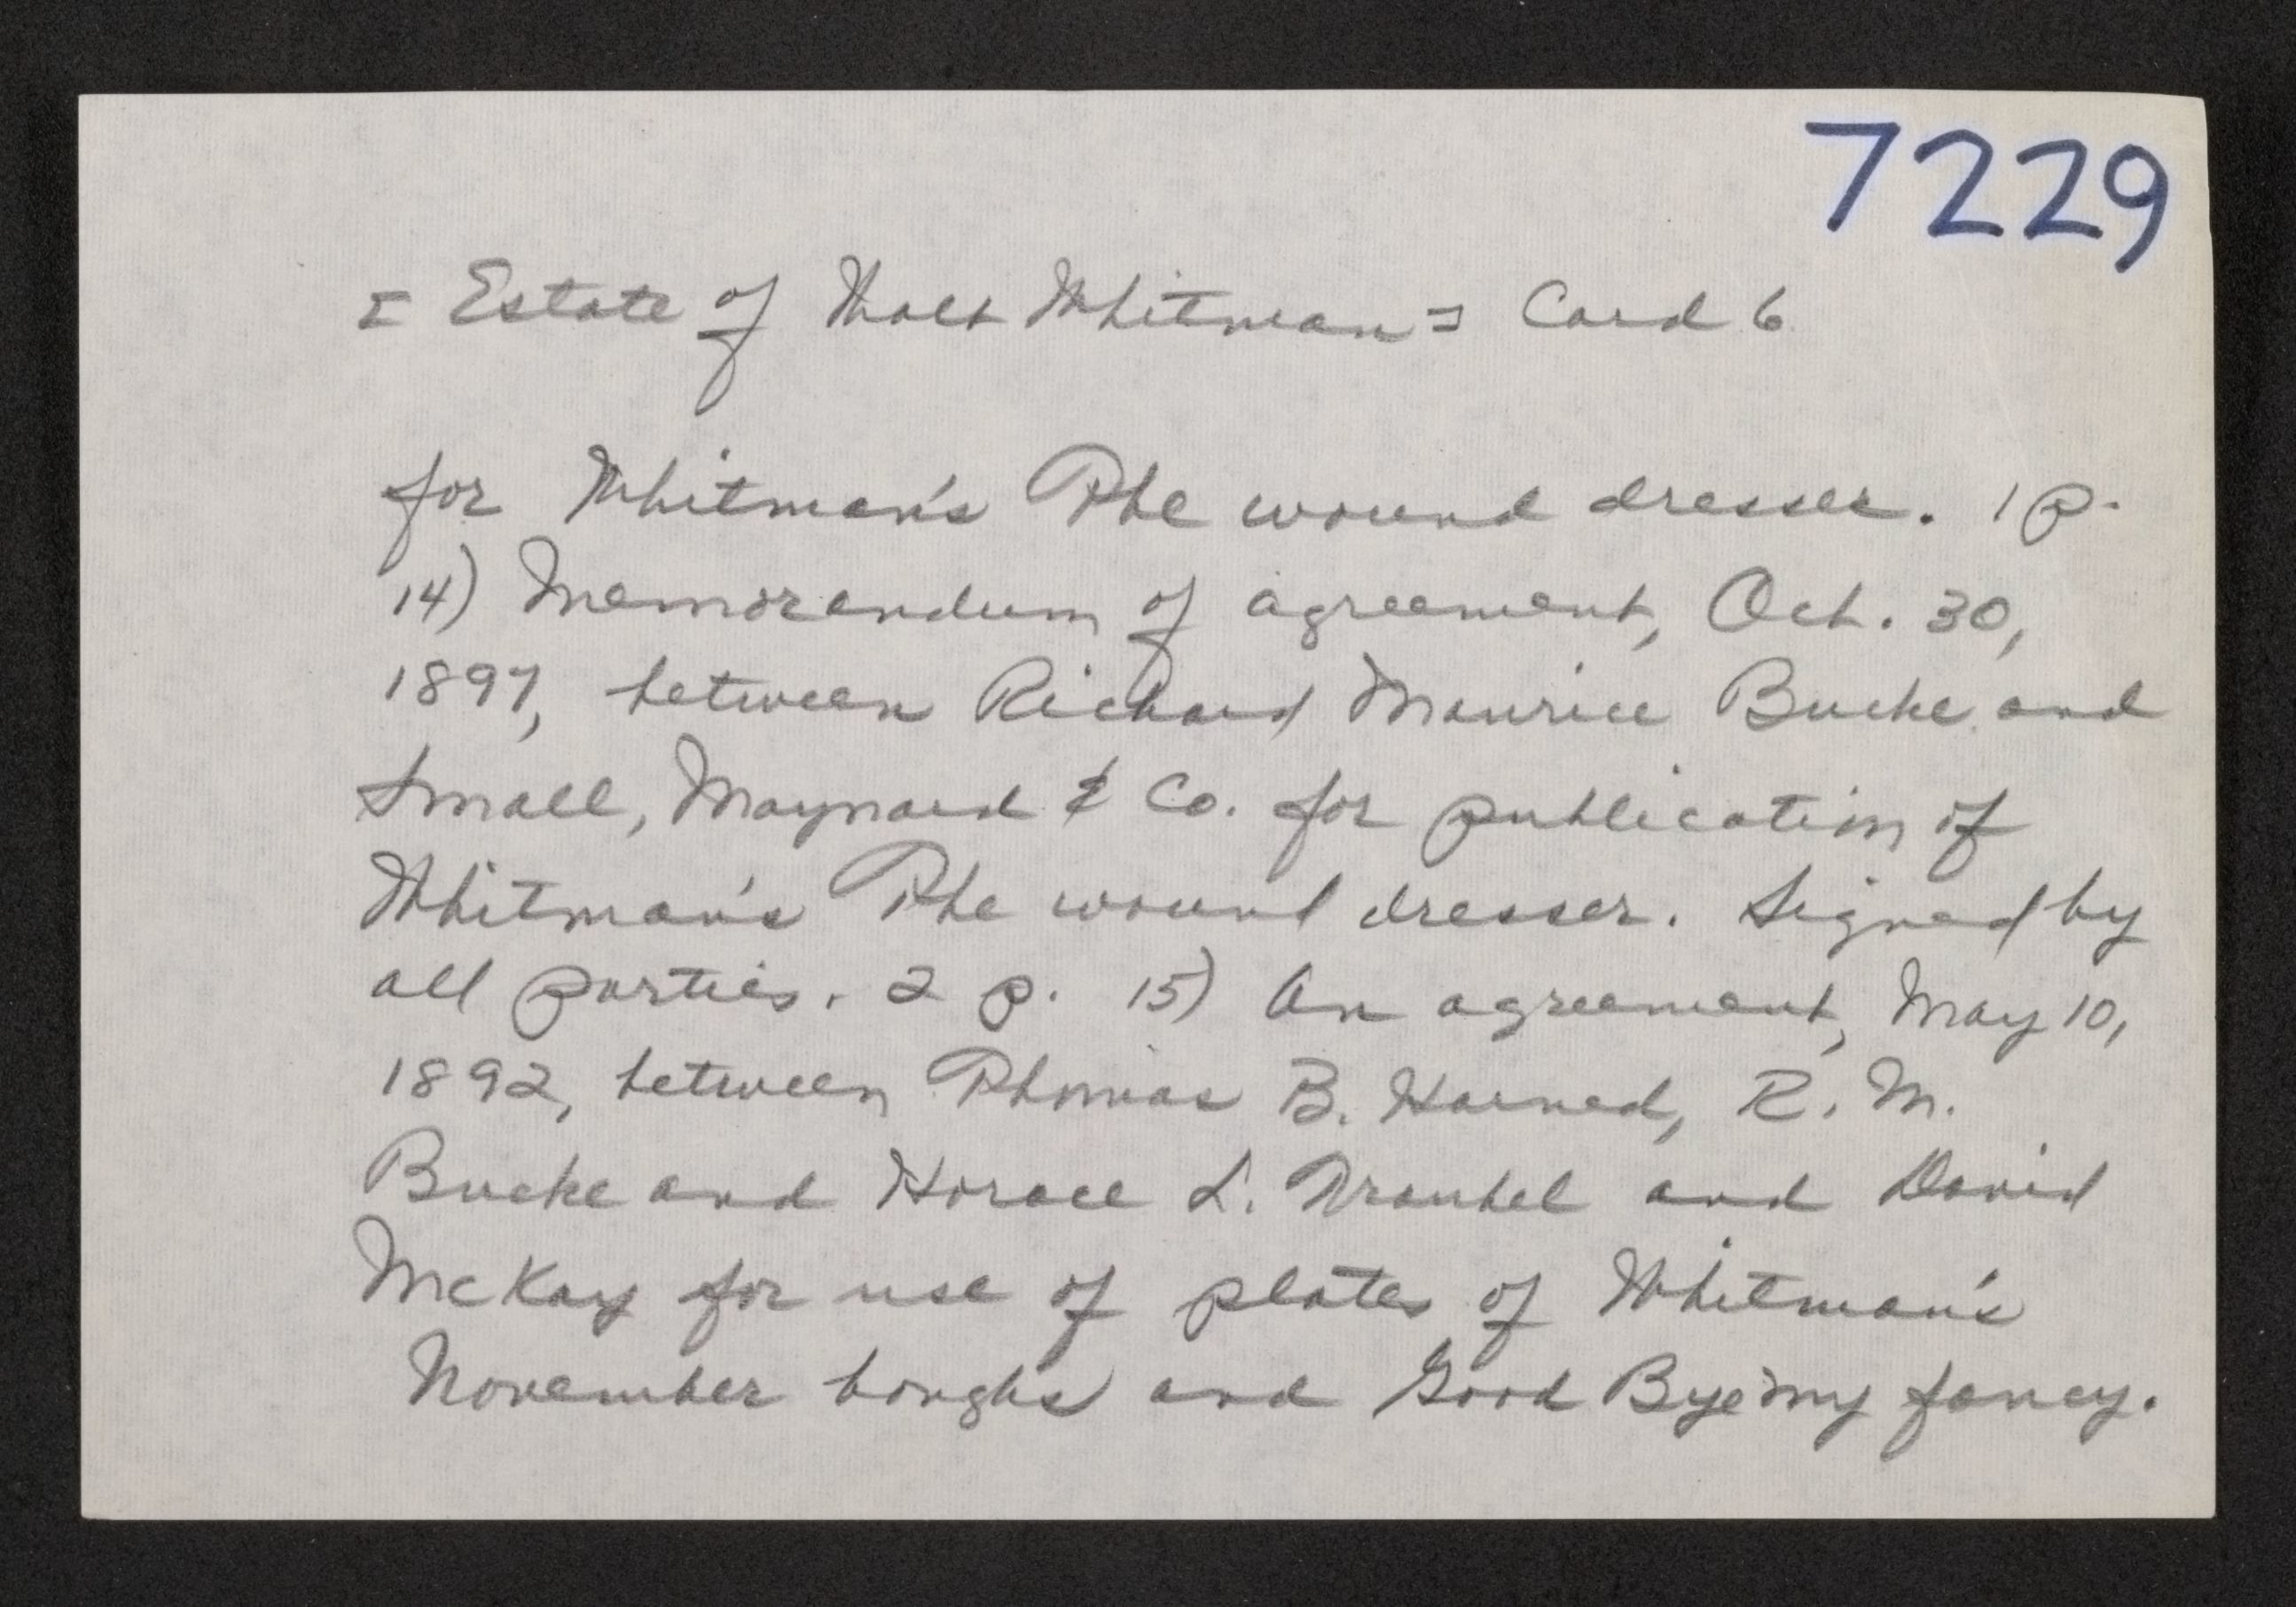 7229
[Estate of Walt Whitman] Card 6
for Whitman's The wound dresser. 1 p.
14) Memorandum of agreement, Oct. 30,
1897, between Richard Maurice Bucke and
Small, Maynard & Co. for publication of
Whitman's The wound dresser. Signed by
all parties. 2 p. 15) An agreement, May 10,
1892, between Thomas B. Harned, R. M.
Bucke and Horace L. Traubel and David
McKay for use of plates of Whitman's
November boughs and Good Bye my fancy.